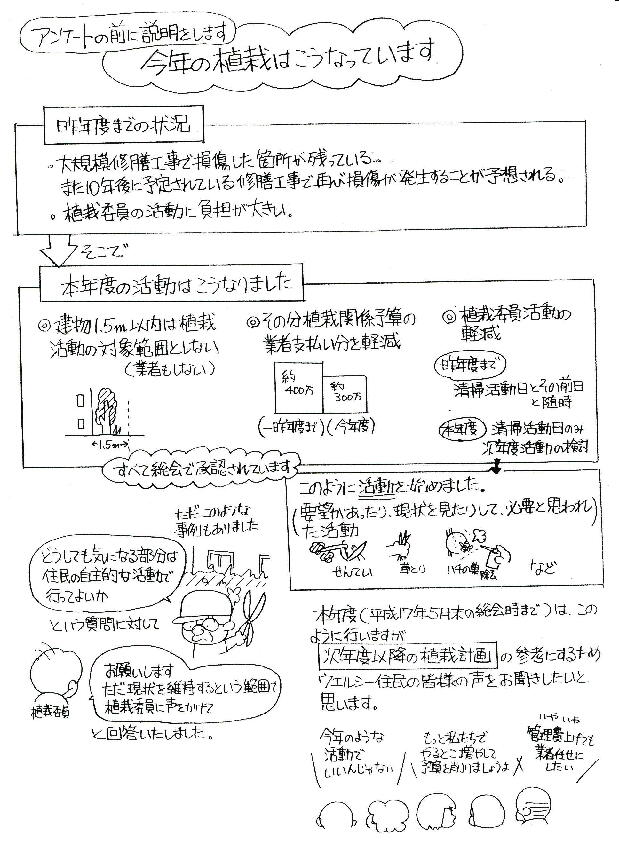 アンケートの前に説明をします
今年の植栽はこうなっています
昨年度までの状況
・大規模修膳工事で損傷した箇所が残っている…
また10年後に予定されている修膳工事で再び損傷が発生することが予想される。
・植栽委員の活動に負担が大きい。
そこで
本年度の活動はこうなりました
◎建物1.5m以内は植栽
活動の対象範囲としない
(業者もしない)
←1.5m→
◎その分植栽関係予算の
業者支払い分を軽減
約
400万
約
300万
(一昨年度まで)(今年度)
◎植栽委員活動の
軽減
昨年度まで
清掃活動日とその前日
と随時
本年度 清掃活動日のみ
次年度活動の検討
すべて総会で承認されています
このように活動を始めました。
(要望があったり、現状を見たりして、必要と思われ)
た活動
せんてい 草とり ハチの巣 除去 など
ただこのような
事例もありました
どうしても気になる部分は
住民の自主的な活動で
行ってよいか
という質問に対して
お願いします
ただ現状を維持するという範囲で
植栽委員に声をかけて
植栽委員
と回答いたしました。
本年度(平成17年5月末の総会時まで)は、この
ように行いますが
次年度以降の植栽計画 の参考にするため
ウエルシー住民の皆様の声をお聞きしたいと
思います。
今年のような
活動で
いいんじゃない
もっと私たちで
やるとこ増やして
予算を減りましょうよ
いやいや
管理費上げても
業者任せに
したい